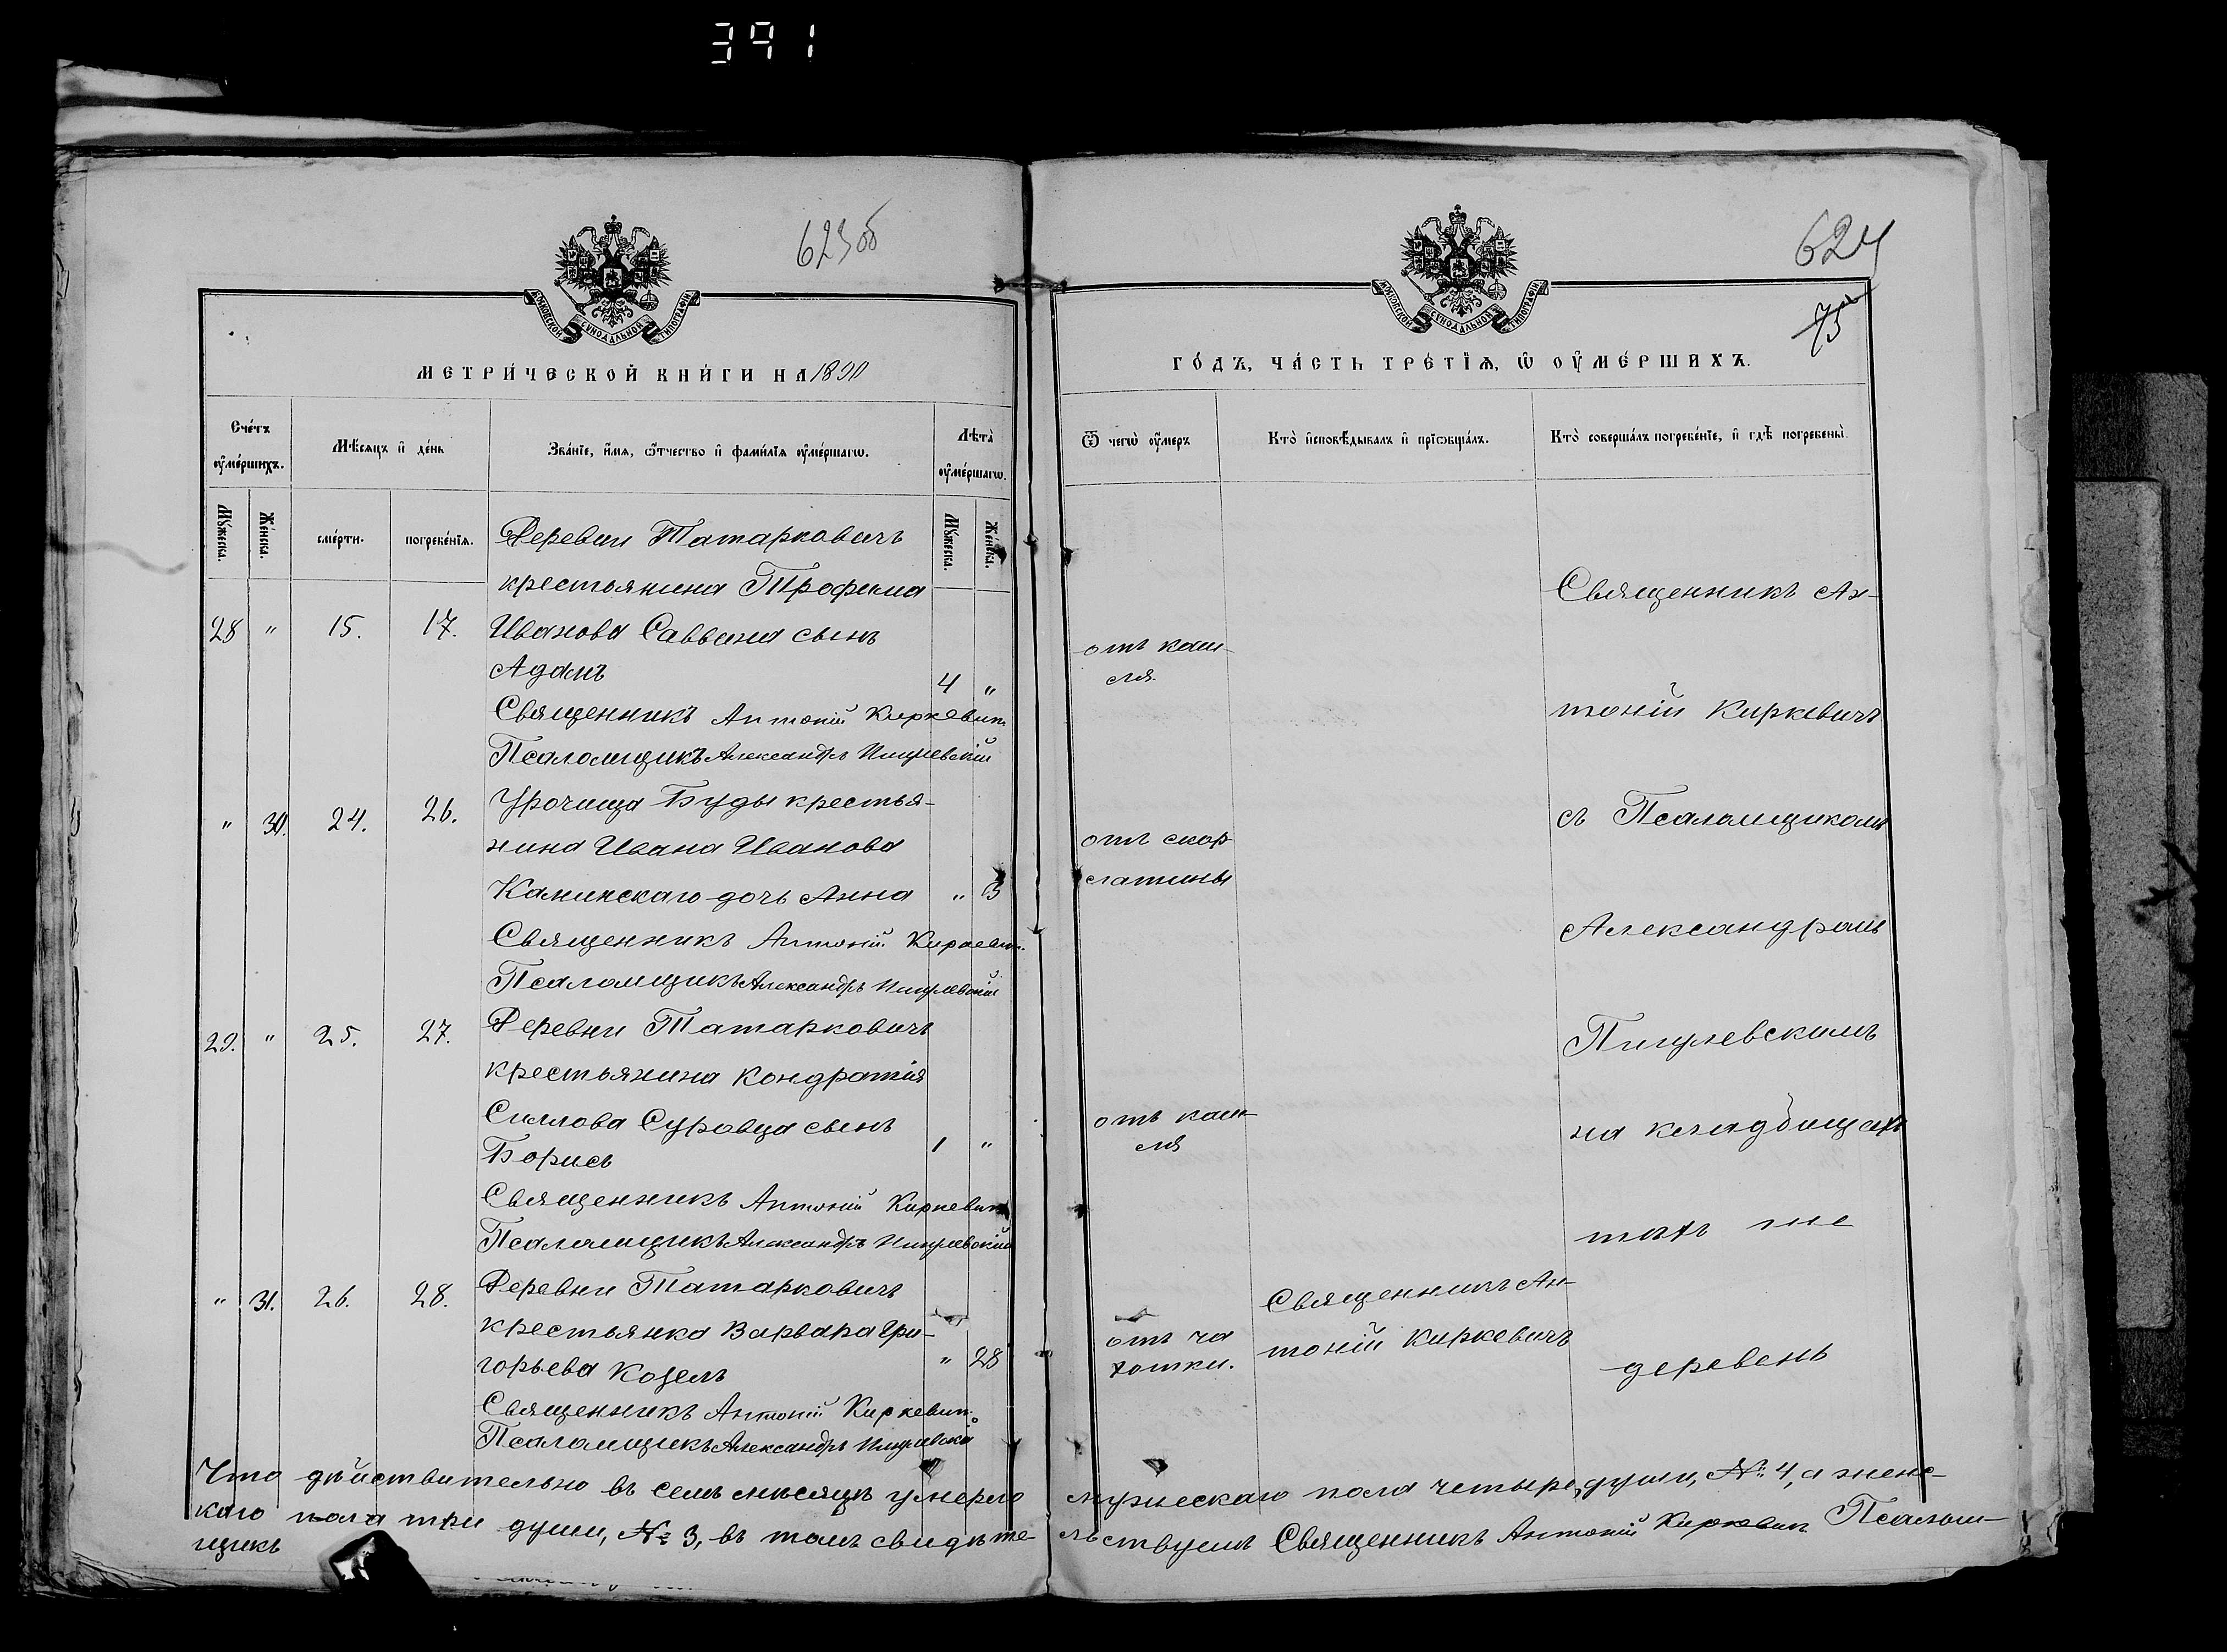 391
623об
МОСКОВСКОЙ СѴНОДАЛЬНОЙ ТИПОГРАФІИ
МЕТРИ́ЧЕСКОЙ КНИ́ГИ НА 1890
Сче́тъ ᲂу҆ме́ршихъ.
Мѣ́сяцъ и҆ де́нь
Зва́нїе, и҆́мя, ѻ҆́тчество и҆ фами́лїя ᲂу҆ме́ршагѡ.
Лѣта̀ ᲂу҆ме́ршагѡ.
Мꙋ́жеска.
Же́нска.
сме́рти.
погребе́нїя.
Мꙋ́жеска.
Же́нска.
Деревни Татарковичъ
крестьянина Трофима
28 " 15. 17. Иванова Саввина сынъ
Адамъ 4 "
Священникъ Антоній Киркевич
Псаломщикъ Александръ Пигулевскій
" 30. 24. 26. Урочища Буды крестья-
нина Ивана Иванова
Каминскаго дочь Анна " 3
Священникъ Антоній Киркевич
Псаломщикъ Александръ Пигулевскій
29. " 25. 27. Деревни Татарковичъ
крестьянина Кондратія
Силлова Суровца сынъ
Борисъ 1 "
Священникъ Антоній Киркевич
Псаломщикъ Александръ Пигулевскій
" 31. 26. 28. Деревни Татарковичъ
крестьянка Варвара Гри-
горьева Козелъ " 28
Священникъ Антоній Киркевич
Псаломщикъ Александръ Пигулевскій
624
75
МОСКОВСКОЙ СѴНОДАЛЬНОЙ ТИПОГРАФІИ
ГО́ДЪ, ЧА́СТЬ ТРЕ́ТЇЯ, Ѽ ОУ҆МЕ́РШИХЪ.
Ѿ чегѡ̀ ᲂу҆́меръ
Кто̀ и҆сповѣ́дывалъ и҆ прїѡбща́лъ.
Кто̀ соверша́лъ погребе́нїе, и҆ гдѣ̀ погребены̀.
Священникъ Ан-
отъ каш-
ля.
тоній Киркевичъ
съ Псаломщикомъ
отъ скор-
латины
Александромъ
Пигулевскимъ
отъ каш-
ля
на кладбищахъ
тѣхъ же
Священникъ Ан-
отъ ча
хотки.
тоній Киркевичъ
деревень
Что дѣйствительно въ семъ мѣсяцѣ умерло мужескаго пола четыре души, № 4, а женс-
каго пола три души, № 3, въ томъ свидѣте- льствуемъ Священникъ Антоній Киркевич Псалом-
щикъ